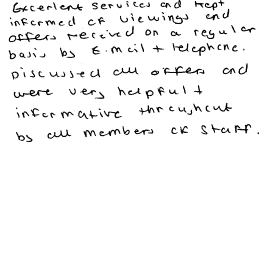 Excellent services and kept
informed of viewings and
offers received on a regular
basis by E.mail + telephone.
Discussed all offers and
were very helpful +
informative throughout
by all members of staff.